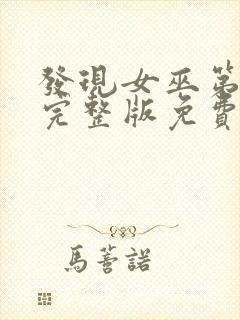 發現女巫第
完整版免費
馬薝諾